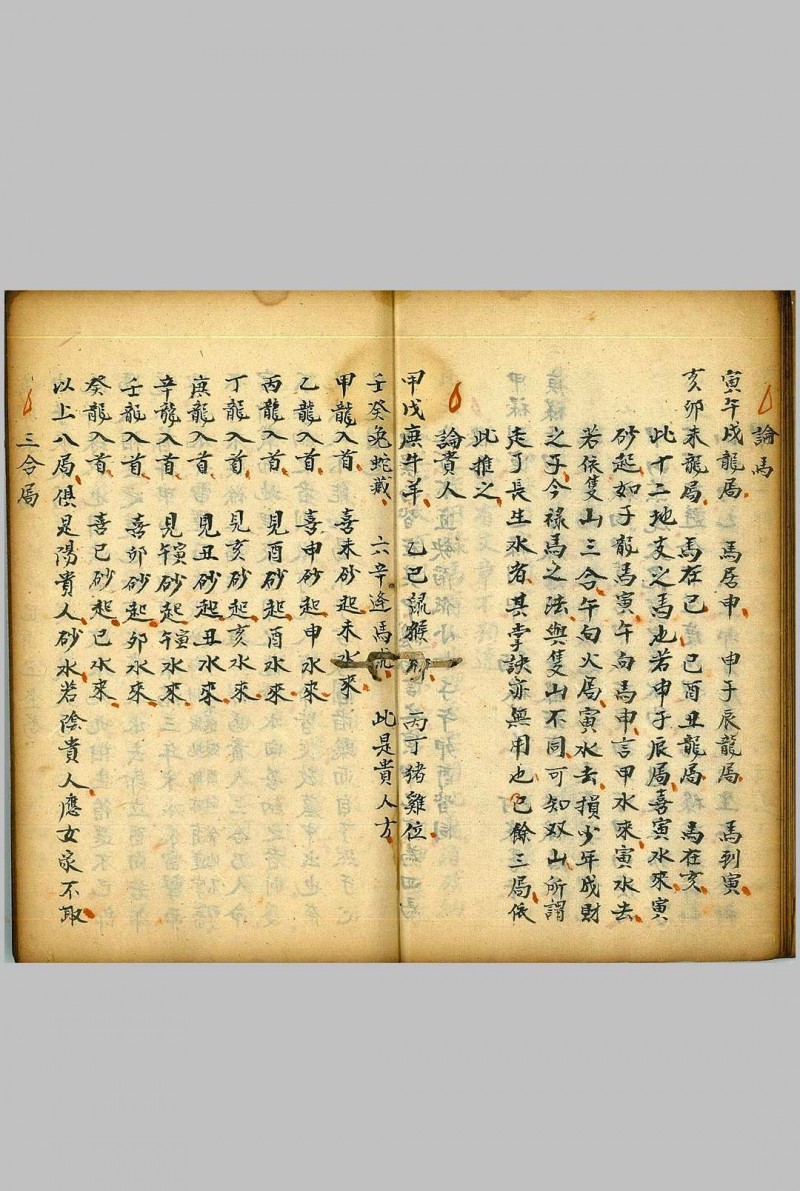 論馬
寅午戌龍局 馬居申 申子辰龍局 馬到寅
亥卯未龍局 馬在巳 巳酉丑龍局 馬在亥
此十二地支之馬也若申子辰局喜寅水來寅
砂起如子龍馬寅午向馬申言甲水來寅水去
若依隻山三合午向火局寅水去損少年成財
之子今祿馬之法與隻山不同可知双山所謂
走了長生水者其掌訣亦無用也已餘三局依
此推之
論貴人
甲戊庚牛羊 乙己鼠猴鄉 丙丁猪雞位
壬癸兔蛇藏 六辛逢馬虎 此是貴人方
甲龍入首 喜未砂起未水來
乙龍入首 喜申砂起申水來
丙龍入首 見酉砂起酉水來
丁龍入首 見亥砂起亥水來
庚龍入首 見丑砂起丑水來
辛龍入首 見寅午砂起寅午水來
壬龍入首 喜卯砂起卯水來
癸龍入首 喜巳砂起巳水來
以上八局俱是陽貴人砂水若陰貴人應女家不取
三合局